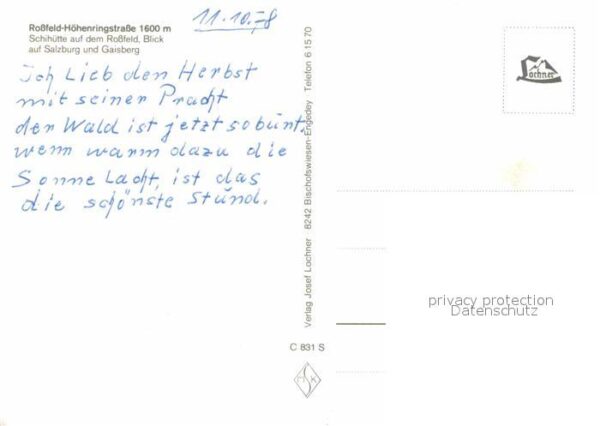 11.10.78
Roßfeld-Höhenringstraße 1600 m
Schihütte auf dem Roßfeld, Blick
auf Salzburg und Gaisberg
Ich Lieb den Herbst
mit seiner Pracht
der Wald ist jetzt so bunt,
wenn warm dazu die
Sonne Lacht, ist das
die schönste Stund.
Verlag Josef Lochner 8242 Bischofswiesen-Engedey Telefon 6 15 70
Lochner
privacy protection
Datenschutz
C 831 S